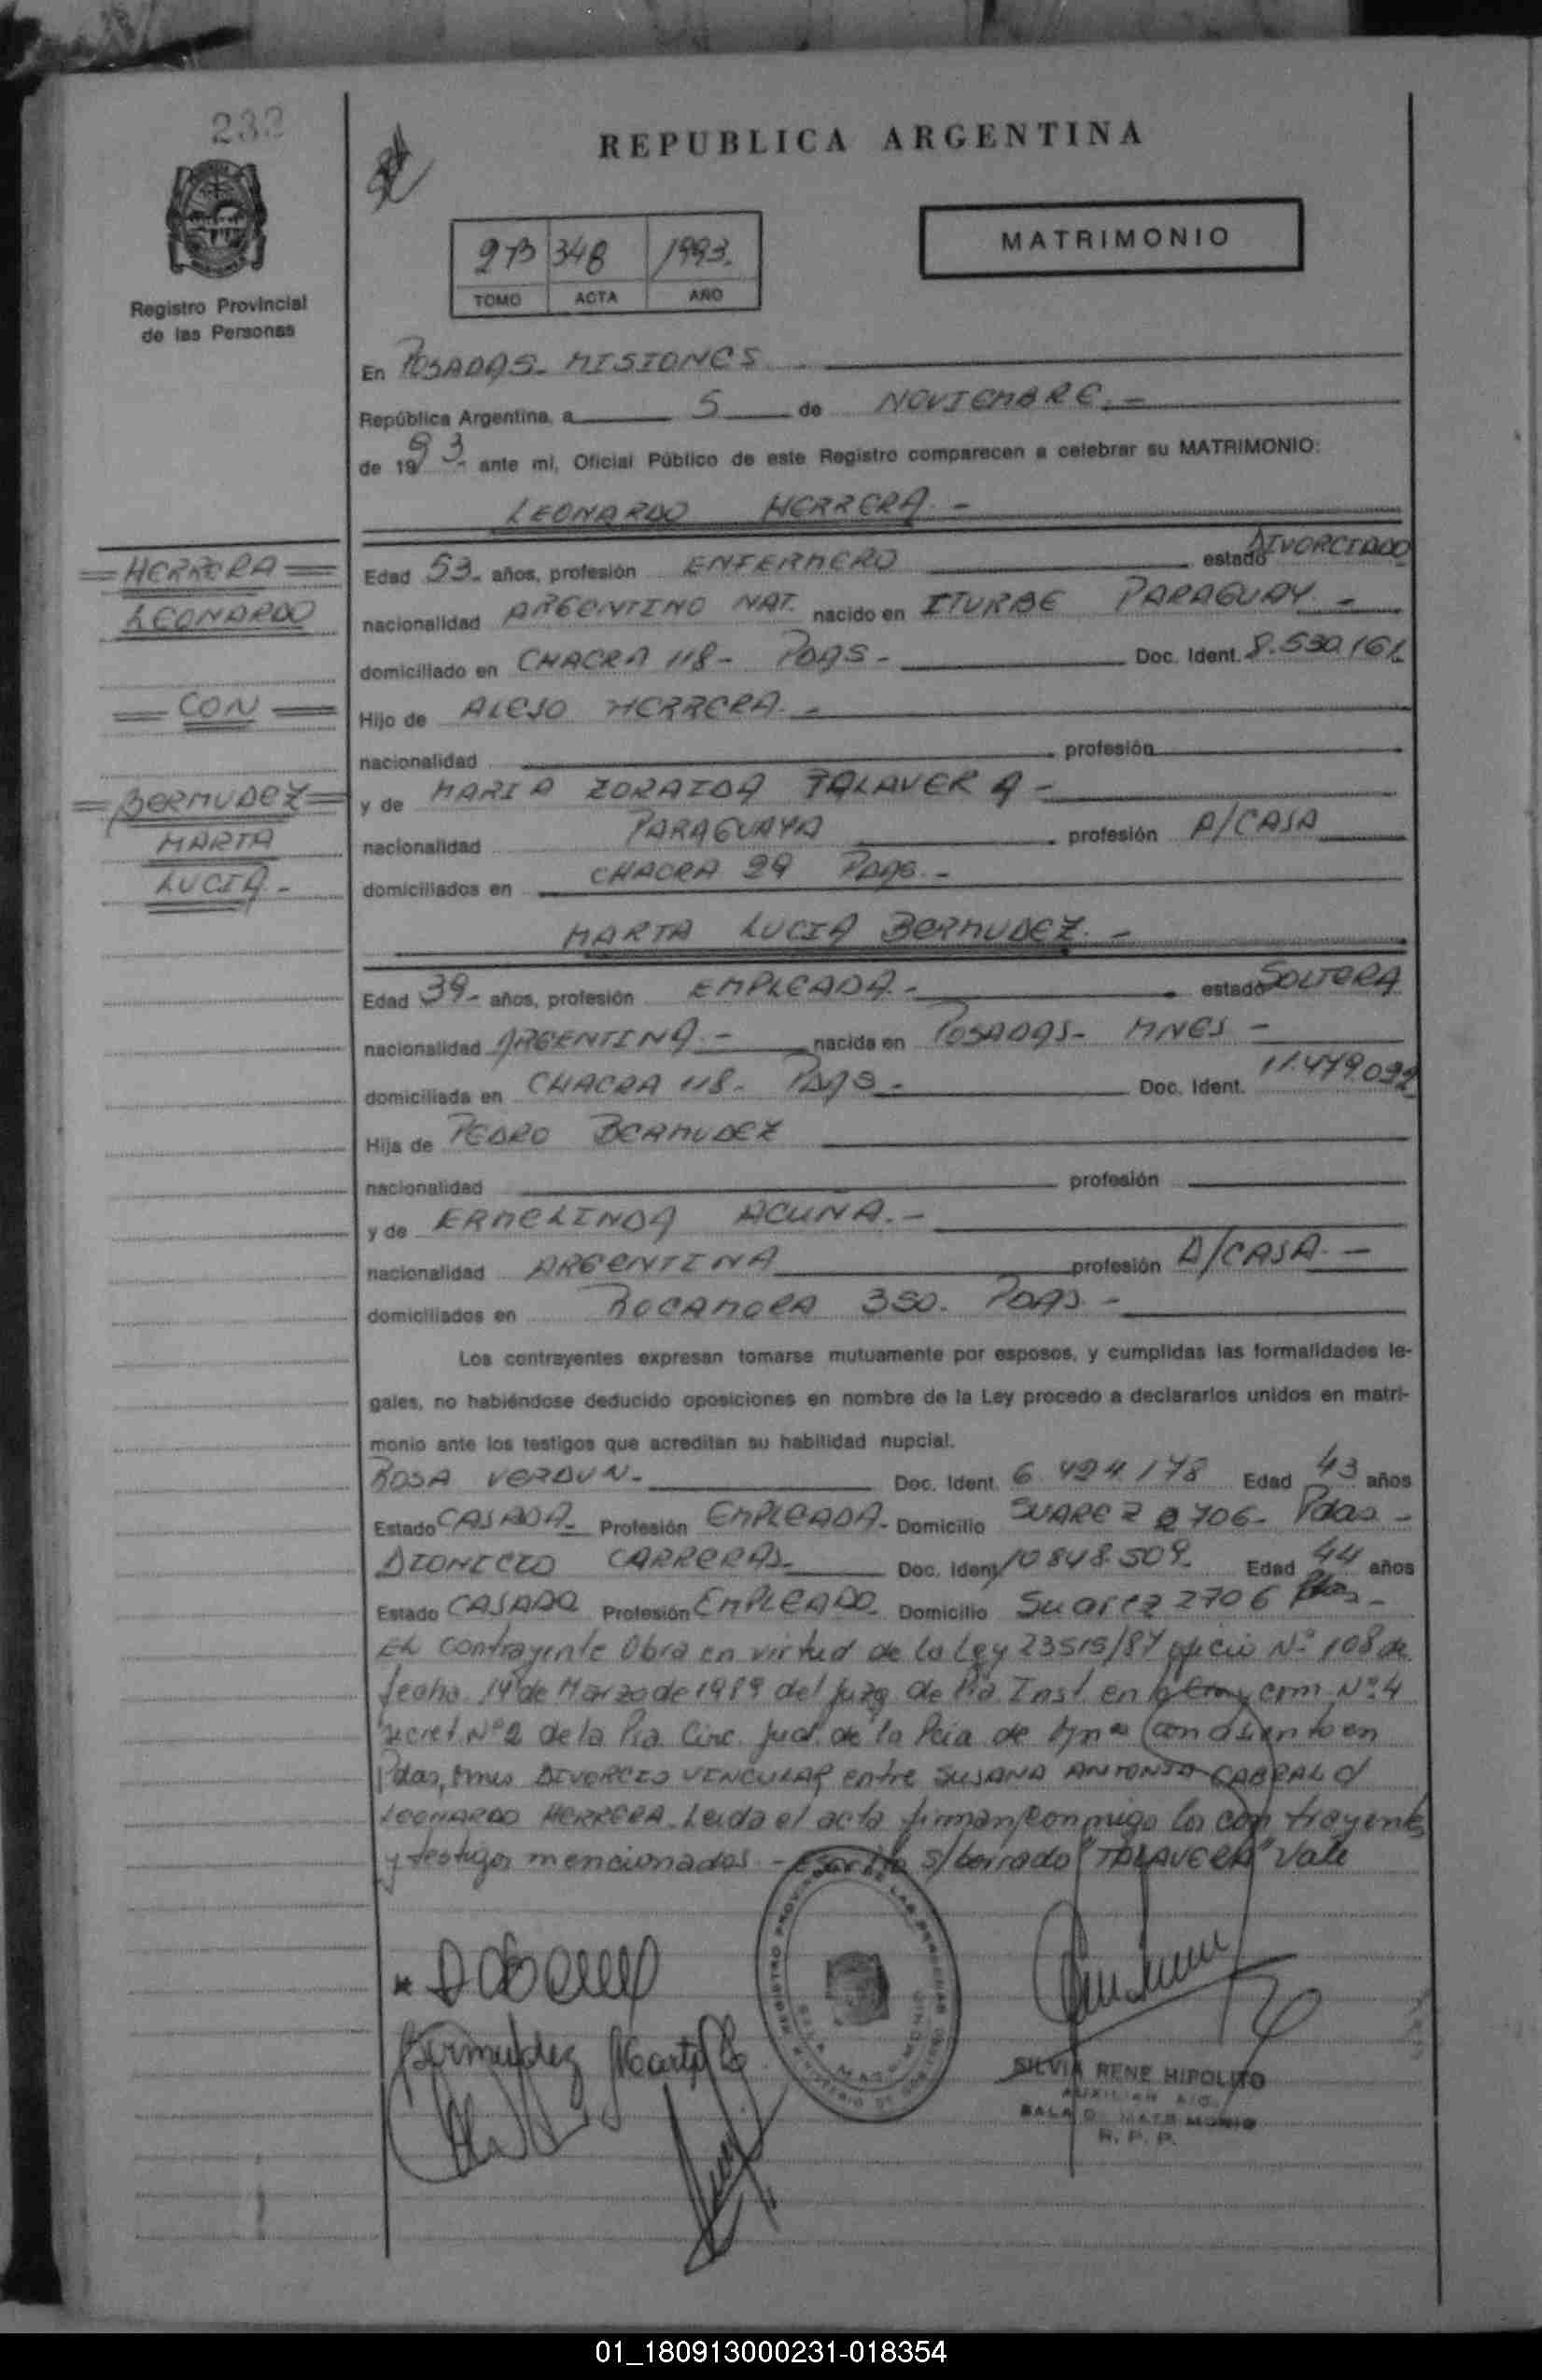 232
REPUBLICA ARGENTINA
MATRIMONIO
2B 348 1993.
TOMO ACTA AÑO
Registro Provincial
de las Personas
En POSADAS - MISIONES
República Argentina, a 5 de NOVIEMBRE.-
de 1993.- ante mí, Oficial Público de este Registro comparecen a celebrar su MATRIMONIO:
LEONARDO HERRERA.-
HERRERA
LEONARDO
CON
BERMUDEZ
MARTA
LUCIA.-
Edad 53.- años, profesión ENFERMERO estado DIVORCIADO
nacionalidad ARGENTINO NAT. nacido en ITURBE PARAGUAY.-
domiciliado en CHACRA 118- PDAS- Doc. Ident. 8.530.161
Hijo de ALEJO HERRERA.-
nacionalidad profesión
y de MARIA ZORAIDA TALAVERA-
nacionalidad PARAGUAYA profesión A/CASA
domiciliados en CHACRA 29 PDAS.-
MARTA LUCIA BERMUDEZ.-
Edad 39- años, profesión EMPLEADA.- estado SOLTERA
nacionalidad ARGENTINA.- nacida en POSADAS- MNES-
domiciliada en CHACRA 118- PDAS- Doc. Ident. 11.479.092
Hija de PEDRO BERMUDEZ
nacionalidad profesión
y de ERMELINDA ACUNA.-
nacionalidad ARGENTINA profesión A/CASA.-
domiciliados en ROCAMORA 350. PDAS-
Los contrayentes expresan tomarse mutuamente por esposos, y cumplidas las formalidades le-
gales, no habiéndose deducido oposiciones en nombre de la Ley procedo a declararlos unidos en matri-
monio ante los testigos que acreditan su habilidad nupcial.
ROSA VERDUN- Doc. Ident. 6.424.178 Edad 43 años
Estado CASADA- Profesión EMPLEADA- Domicilio SUAREZ 2706- Pdas-
DIONICIO CARRERAS- Doc. Ident. 10848.509 Edad 44 años
Estado CASADO Profesión EMPLEADO Domicilio Suarez 2706 Pdas-
El contrayente Obra en virtud de la Ley 23515/87 oficio Nº 108 de
fecha 14 de Marzo de 1989 del Juzg de Pra Inst en com Nº 4
secret Nº 2 de la Pra. Circ. Jud. de la Pcia de Mnes con asiento en
Pdas, Mnes DIVORCIO VINCULAR entre SUSANA ANTONIA CABRAL C/
LEONARDO HERRERA. Leida el acta firman conmigo los contrayentes
y testigos mencionados - Escrito S/borrado "TALAVERA" Vale
Bermudez Marta
SILVIA RENE HIPOLITO
SALA D. MATRIMONIO
R. P. P.
01_180913000231-018354